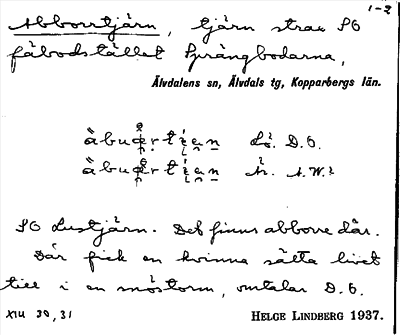 1-2
Abborrtjärn, tjärn strax SO
fäbodstället Sprängbodarna,
Älvdalens sn, Älvdals tg, Kopparbergs län.
D.O.
A.W.
SO Lustjärn. Det finns abborre där.
Där fick en kvinna sätta livet
till i en snöstorm, omtalar D.O.
XIU 30,31 HELGE LINDBERG 1937.